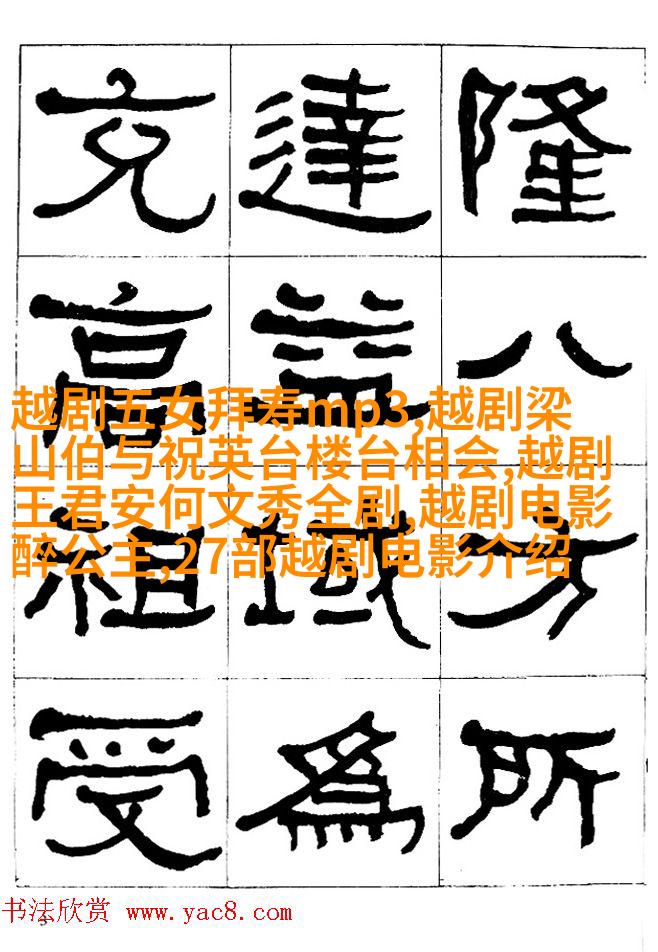 隆八方所
達益域爲
充高祖受
越剧五女拜寿mp3,越剧梁
山伯与祝英台楼台相会,越剧
王君安何文秀全剧,越剧电影
醉公主,27部越剧电影介绍
3
书法欣赏 www.yac8.com